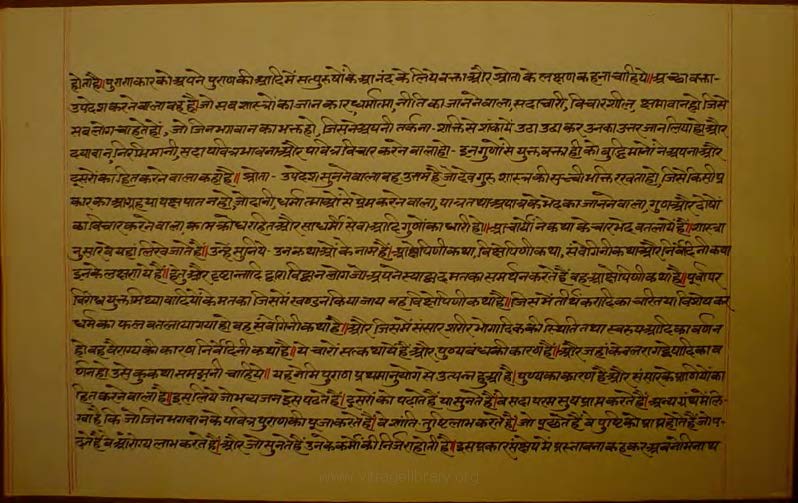 होता है॥ पुराणकारको अपने पुराण की आदि में सत्पुरुषों के आनंद के लिये वक्ता और श्रोता के लक्षण कहना चाहिये॥ अच्छा वक्ता-
उपदेश करने वाला वह है। जो सब शास्त्रों का जानकार, धर्मात्मा, नीति का जानने वाला, सदाचारी, विचारशील, क्षमावान हो, जिसे
सब लोग चाहते हों, जो जिनभगवान का भक्त हो, जिसने अपनी तर्कना-शक्ति से शंकायें उठा उठाकर उनका उत्तर जान लिया हो और
दयावान, निरभिमानी, सदा पवित्र भावना और पवित्र विचार करने वाला हो- इन गुणों से युक्त वक्ता ही को बुद्धिमानों ने अपना और
दूसरों का हित करने वाला कहा है॥ श्रोता- उपदेश सुनने वाला वह उत्तम है जो देव गुरु शास्त्र की सच्ची भक्ति रखता हो, जिसे किसी प्र
कार का आग्रह या पक्षपात न हो, जो दानी, धर्मात्माओं से प्रेम करने वाला, पात्र तथा अपात्र के भेद का जानने वाला, गुण और दोषों
का विचार करने वाला, काम क्रोध रहित और साधर्मी सेवा आदि गुणों का धारी हो॥ आचार्यों ने कथा के चार भेद बतलाये हैं॥ शास्त्रा
नुसार वे यहां लिखे जाते हैं॥ उन्हें सुनिये- उन कथाओं के नाम हैं। आक्षेपिणी कथा, विक्षेपिणी कथा, संवेगिनी कथा और निर्वेदिनी कथा
इनके लक्षण ये हैं॥ हेतु और दृष्टान्तादि द्वारा विद्वान लोग जो अपने स्याद्वाद मत का समर्थन करते हैं वह आक्षेपिणी कथा है॥ पूर्वापर
विरोध युक्त मिथ्यावादियों के मत का जिसमें खण्डन किया जाय वह विक्षेपिणी कथा है॥ जिस में तीर्थंकरादि का चरित या विशेष कर
धर्म का फल बतलाया गया हो वह संवेगिनी कथा है॥ और जिसमें संसार शरीर भोगादिक की स्थिति तथा स्वरूप आदि का वर्णन
हो वह वैराग्य की कारण निर्वेदिनी कथा है॥ ये चारों सत्कथायें हैं और पुण्यबंध की कारण हैं॥ और जहां केवल राग द्वेषादि का व
र्णन हो उसे कुकथा समझनी चाहिये॥ यह नेमि पुराण प्रथमानुयोग से उत्पन्न हुआ है। पुण्य का कारण है और संसार के प्राणियों का
हित करने वाला है॥ इसलिये जो भव्यजन इसे पढते हैं। दूसरों को पढाते हैं या सुनते हैं। वे सदा परम सुख प्राप्त करते हैं॥ अन्य ग्रंथ में लि
खा है कि जो जिनभगवान के पवित्र पुराण की पूजा करते हैं। वे शांति-तुष्टि लाभ करते हैं॥ जो पूछते हैं वे पुष्टि को प्राप्त होते हैं जो प-
ढ़ते हैं वे आरोग्य लाभ करते हैं॥ और जो सुनते हैं उनके कर्मों की निर्जरा होती है॥ इस प्रकार संक्षेप में प्रस्तावना कहकर अब नेमिनाथ
www.vitragelibrary.org